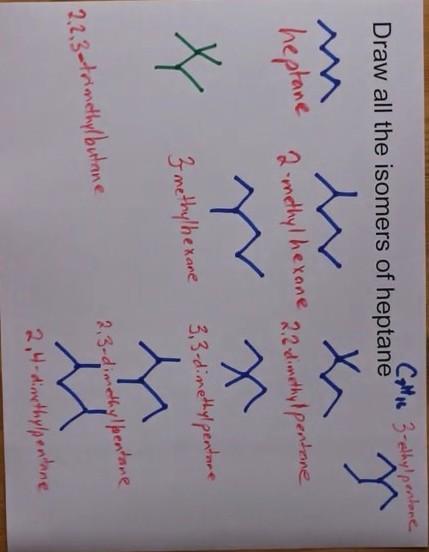 Draw all the isomers of heptane C7H16
heptane
2-methylhexane
2,2-dimethylpentane
3-ethylpentane
3-methylhexane
3,3-dimethylpentane
2,2,3-trimethylbutane
2,3-dimethylpentane
2,4-dimthylpentane